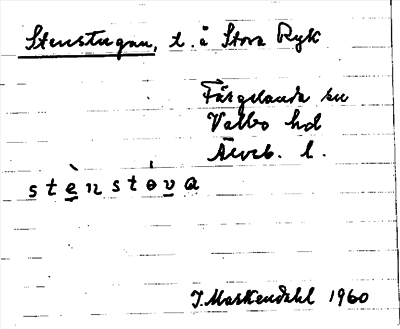 Stenstugan, t. å Stora Ryk
Färgelanda sn
Valbo hd
Älvsb. l.
stènstóva
J. Markendahl 1960